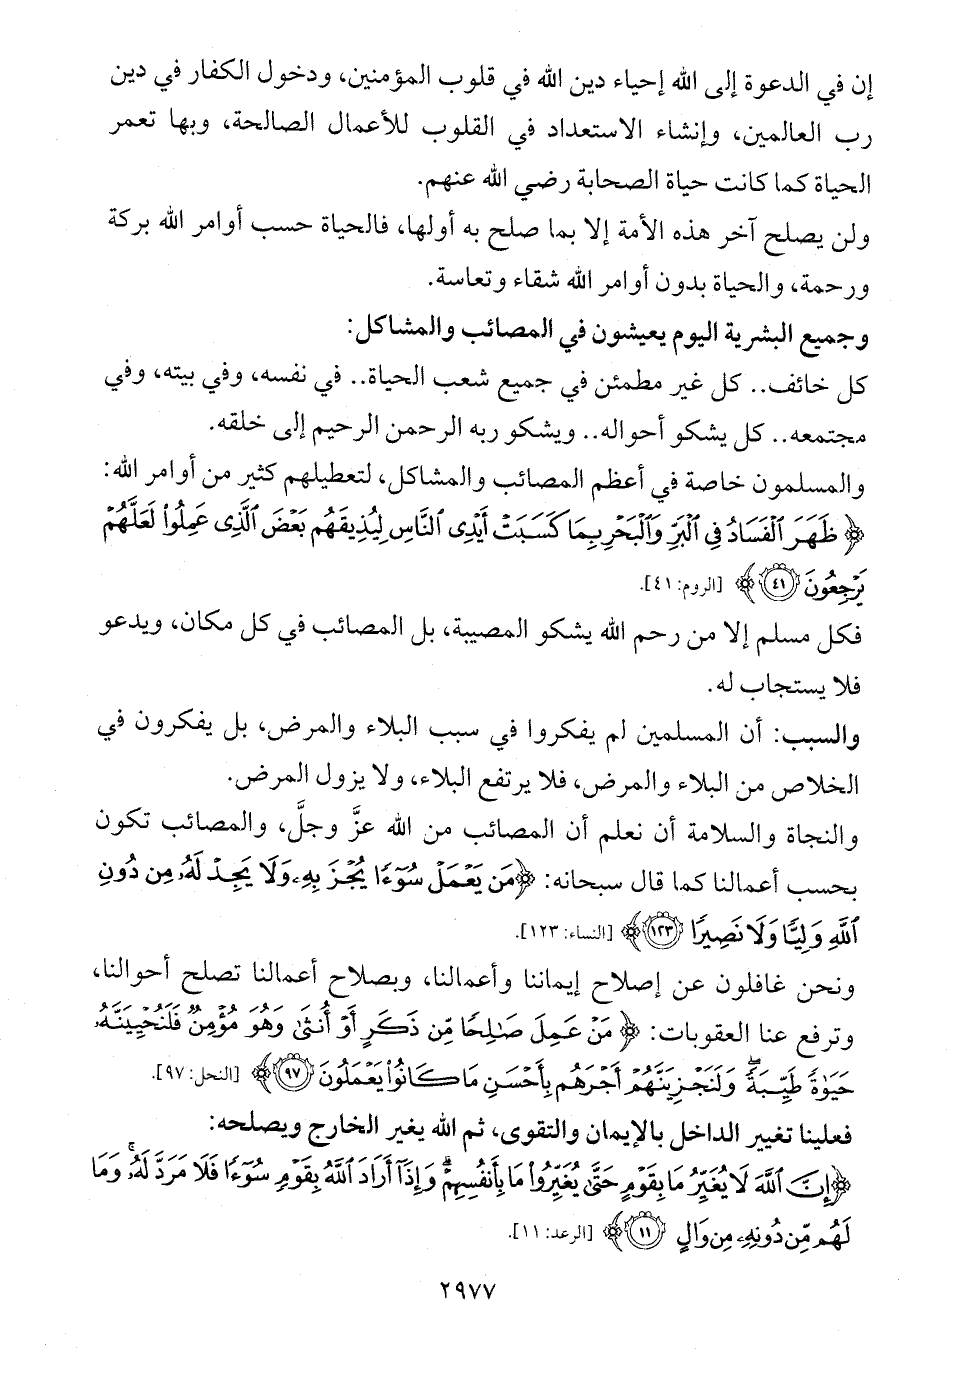 إن في الدعوة إلى الله إحياء دين الله في قلوب المؤمنين، ودخول الكفار في دين
رب العالمين، وإنشاء الاستعداد في القلوب للأعمال الصالحة، وبها تعمر
الحياة كما كانت حياة الصحابة رضي الله عنهم.
ولن يصلح آخر هذه الأمة إلا بما صلح به أولها، فالحياة حسب أوامر الله بركة
ورحمة، والحياة بدون أوامر الله شقاء وتعاسة.
وجميع البشرية اليوم يعيشون في المصائب والمشاكل:
كل خائف.. كل غير مطمئن في جميع شعب الحياة.. في نفسه، وفي بيته، وفي
مجتمعه.. كل يشكو أحواله.. ويشكو ربه الرحمن الرحيم إلى خلقه.
والمسلمون خاصة في أعظم المصائب والمشاكل، لتعطيلهم كثير من أوامر الله:
﴿ظَهَرَ ٱلْفَسَادُ فِى ٱلْبَرِّ وَٱلْبَحْرِ بِمَا كَسَبَتْ أَيْدِى ٱلنَّاسِ لِيُذِيقَهُم بَعْضَ ٱلَّذِى عَمِلُوا۟ لَعَلَّهُمْ
يَرْجِعُونَ ٤١﴾ [الروم: ٤١].
فكل مسلم إلا من رحم الله يشكو المصيبة، بل المصائب في كل مكان، ويدعو
فلا يستجاب له.
والسبب: أن المسلمين لم يفكروا في سبب البلاء والمرض، بل يفكرون في
الخلاص من البلاء والمرض، فلا يرتفع البلاء، ولا يزول المرض.
والنجاة والسلامة أن نعلم أن المصائب من الله عزَّ وجلَّ، والمصائب تكون
بحسب أعمالنا كما قال سبحانه: ﴿مَن يَعْمَلْ سُوٓءًا يُجْزَ بِهِۦ وَلَا يَجِدْ لَهُۥ مِن دُونِ
ٱللَّهِ وَلِيًّا وَلَا نَصِيرًا ١٢٣﴾ [النساء: ١٢٣].
ونحن غافلون عن إصلاح إيماننا وأعمالنا، وبصلاح أعمالنا تصلح أحوالنا،
وترفع عنا العقوبات: ﴿مَنْ عَمِلَ صَٰلِحًا مِّن ذَكَرٍ أَوْ أُنثَىٰ وَهُوَ مُؤْمِنٌ فَلَنُحْيِيَنَّهُۥ
حَيَوٰةً طَيِّبَةً ۖ وَلَنَجْزِيَنَّهُمْ أَجْرَهُم بِأَحْسَنِ مَا كَانُوا۟ يَعْمَلُونَ ٩٧﴾ [النحل: ٩٧].
فعلينا تغيير الداخل بالإيمان والتقوى، ثم الله يغير الخارج ويصلحه:
﴿إِنَّ ٱللَّهَ لَا يُغَيِّرُ مَا بِقَوْمٍ حَتَّىٰ يُغَيِّرُوا۟ مَا بِأَنفُسِهِمْ ۗ وَإِذَآ أَرَادَ ٱللَّهُ بِقَوْمٍ سُوٓءًا فَلَا مَرَدَّ لَهُۥ ۚ وَمَا
لَهُم مِّن دُونِهِۦ مِن وَالٍ ١١﴾ [الرعد: ١١].
٢٩٧٧